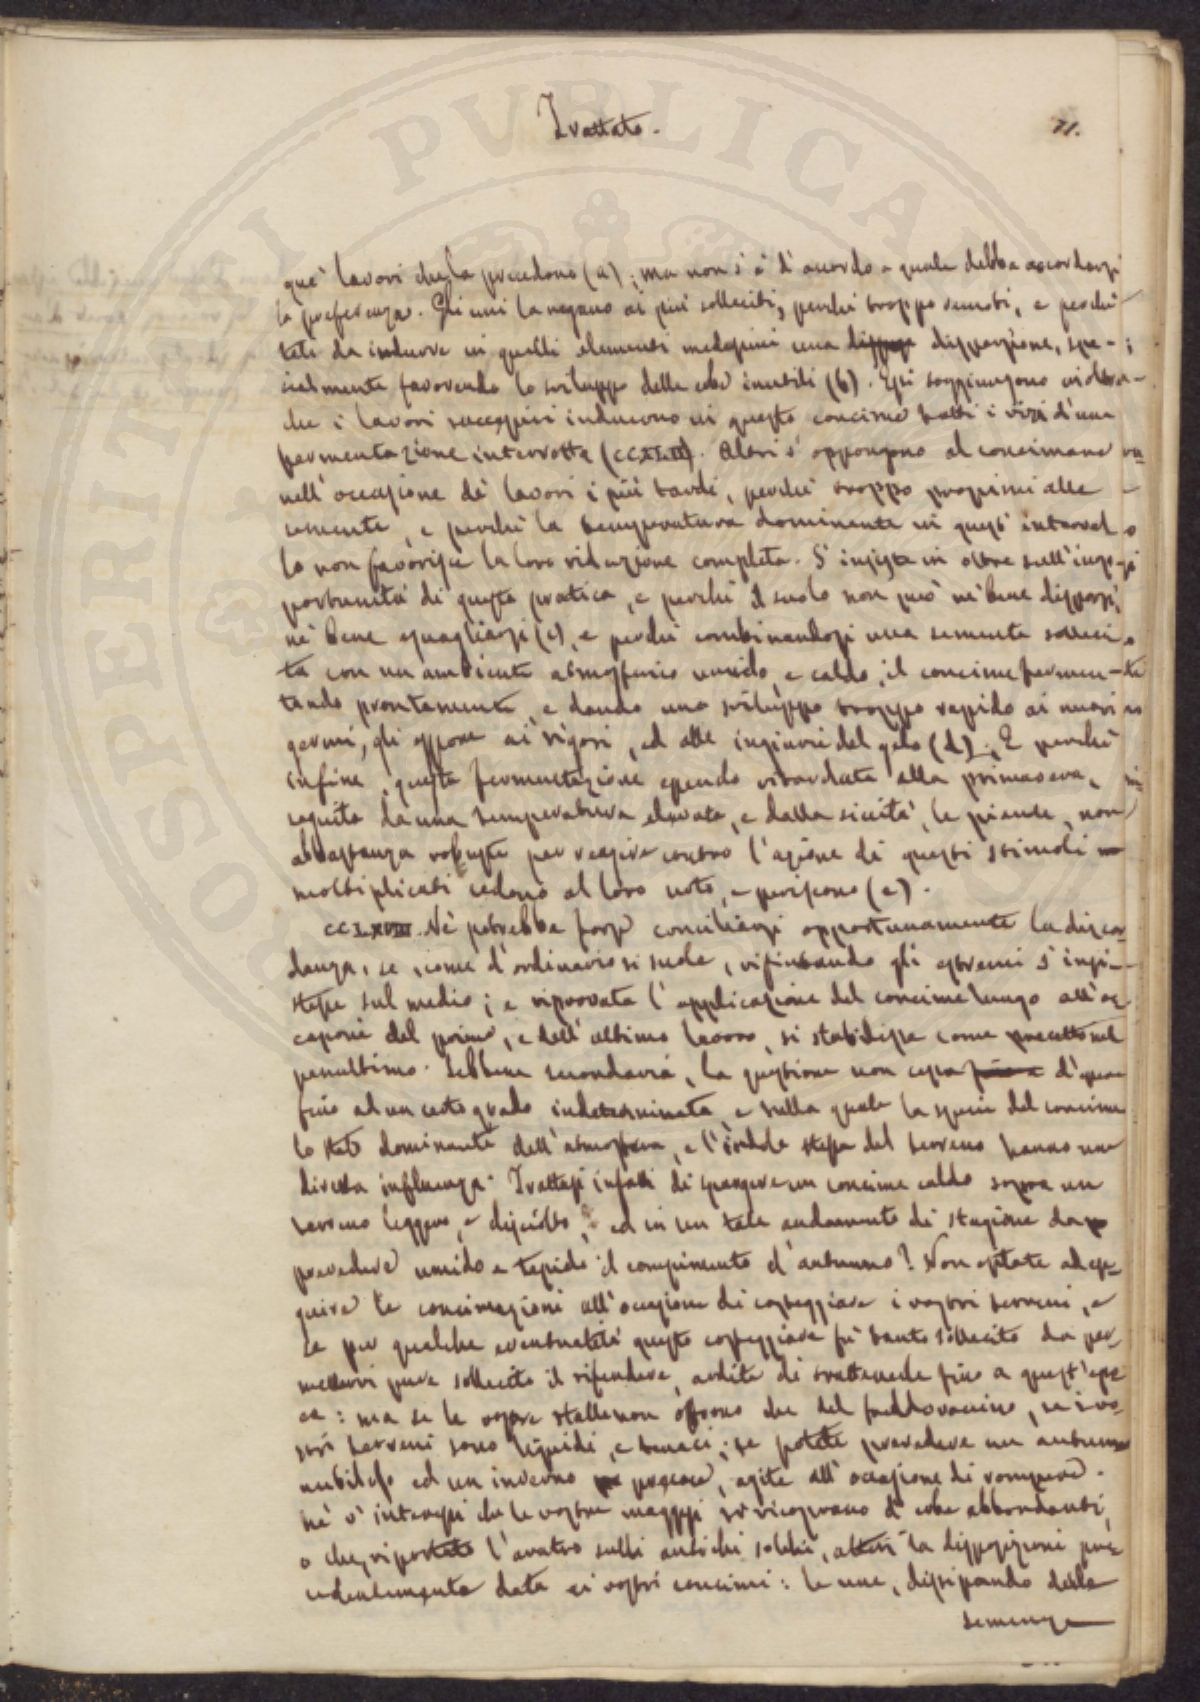 Trattato.
71.
que' lavori che la precedono (a); ma non s'è d'accordo a quale debba accordarsi
la preferenza. Gli uni la negano ai più solleciti, perchè troppo remoti, e perchè
tali da indurre in quelli elementi medesimi una disparizione, spe-
cialmente favorendo lo sviluppo delle erbe inutili (b). Essi soggiungono
che i lavori successivi inducono in questo concime tutti i vizi d'una
fermentazione interrotta. Altri s'oppongono al concimare
nell'occasione de' lavori i più tardi, perchè troppo prossimi alle
semente, e perchè la temperatura dominante in quest'interval
lo non favorisce la loro riduzione completa. S'insiste in oltre sull'inop-
portunità di questa pratica, e perchè il suolo non può nè bene disporsi,
nè bene eguagliarsi (c), e perchè combinandosi una semente solleci
ta con un ambiente atmosferico umido, e caldo, il concime fermen-
tando prontamente, e dando uno sviluppo troppo rapido ai nuovi
germi, gli espone ai rigori, ed alle ingiurie del gelo (d). E perchè
infine, questa fermentazione essendo ritardata alla primavera,
seguita da una temperatura elevata, e dalla siccità, le piante, non
abbastanza robuste per reagire contro l'azione di questi stimoli
moltiplicati cedono al loro urto, e periscono (e).
CCLXVIII. Nè potrebbe forse conciliarsi opportunamente la discor
danza, se, come d'ordinario si suole, rifiutando gli estremi s'insi-
stesse sul medio; e riprovata l'applicazione del concime lungo all'oc
casione del primo, e dell'ultimo lavoro, si stabilisse come precetto nel
penultimo. Sebbene secondaria, la questione non cessa d'essere
fino ad un certo grado indeterminata, e sulla quale la specie del concime
lo stato dominante dell'atmosfera, e l'indole stessa del terreno hanno una
diretta influenza. Trattasi infatti di spargere un concime caldo sopra un
terreno leggero, e disciolto, ed in un tale andamento di stagione da
prevedere umido e tepido il compimento d'autunno? Non esitate ad ese-
guire le concimazioni all'occasione di costeggiare i vostri terreni, e
se per qualche eventualità questo costeggiare fù tanto sollecito da per-
mettervi pure sollecito il rifendere, ardite di trattenerle fino a quest'epo
ca: ma se le vostre stalle non offrono che del freddo vaccino, se i vo-
stri terreni sono umidi, e tenaci; se potete prevedere un autunno
nubiloso ed un inverno precoce, agite all'occasione di rompere.
nè v'interessi che le vostre maggesi si ricoprano d'erbe abbondanti,
o che, riportato l'aratro sulli antichi solchi, alteri la disposizione pre
cedentemente data ai vostri concimi: le une, dissipando della
semenza